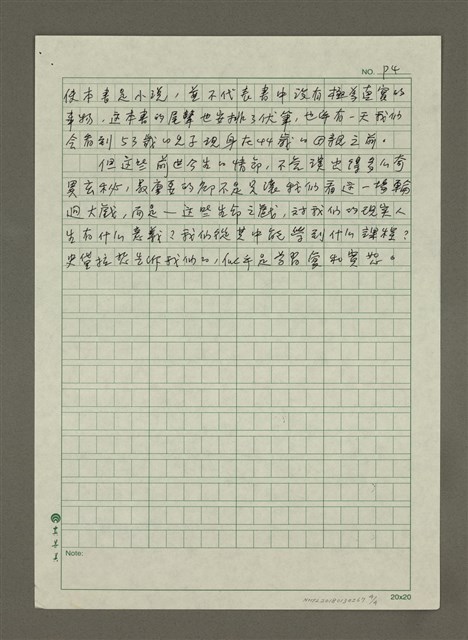 NO. P4
使本書是小說，並不代表書中沒有極為真實的
事物。這本書的尾聲也安排了伏筆，也許有一天我們
會看到53歲的兒子現身在44歲的母親之前。
但這些前世今生的情節，不管演出得多么奇
異玄秘，最重要的卻不是只讓我們看這一場輪
迴大戲，而是——這些生命之戲，对我們的現实人
生有什么意義？我們從其中能学到什么課程？
史黛拉想告訴我們的，似乎是学習愛和寬恕。
Note:
20x20